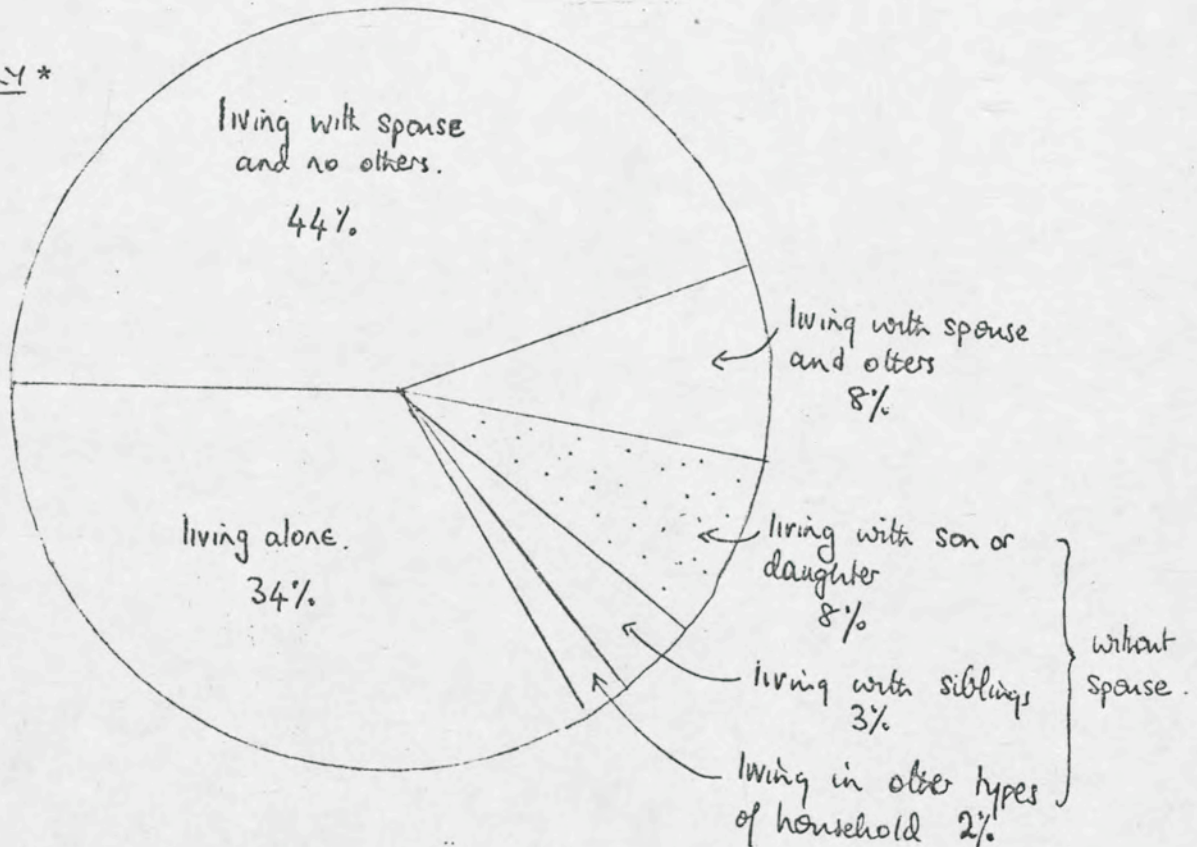 living with spouse
and no others.
44%
living with spouse
and others
8%
living alone.
34%
living with son or
daughter
8%
living with siblings
3%
living in other types
of household 2%
without
spouse.